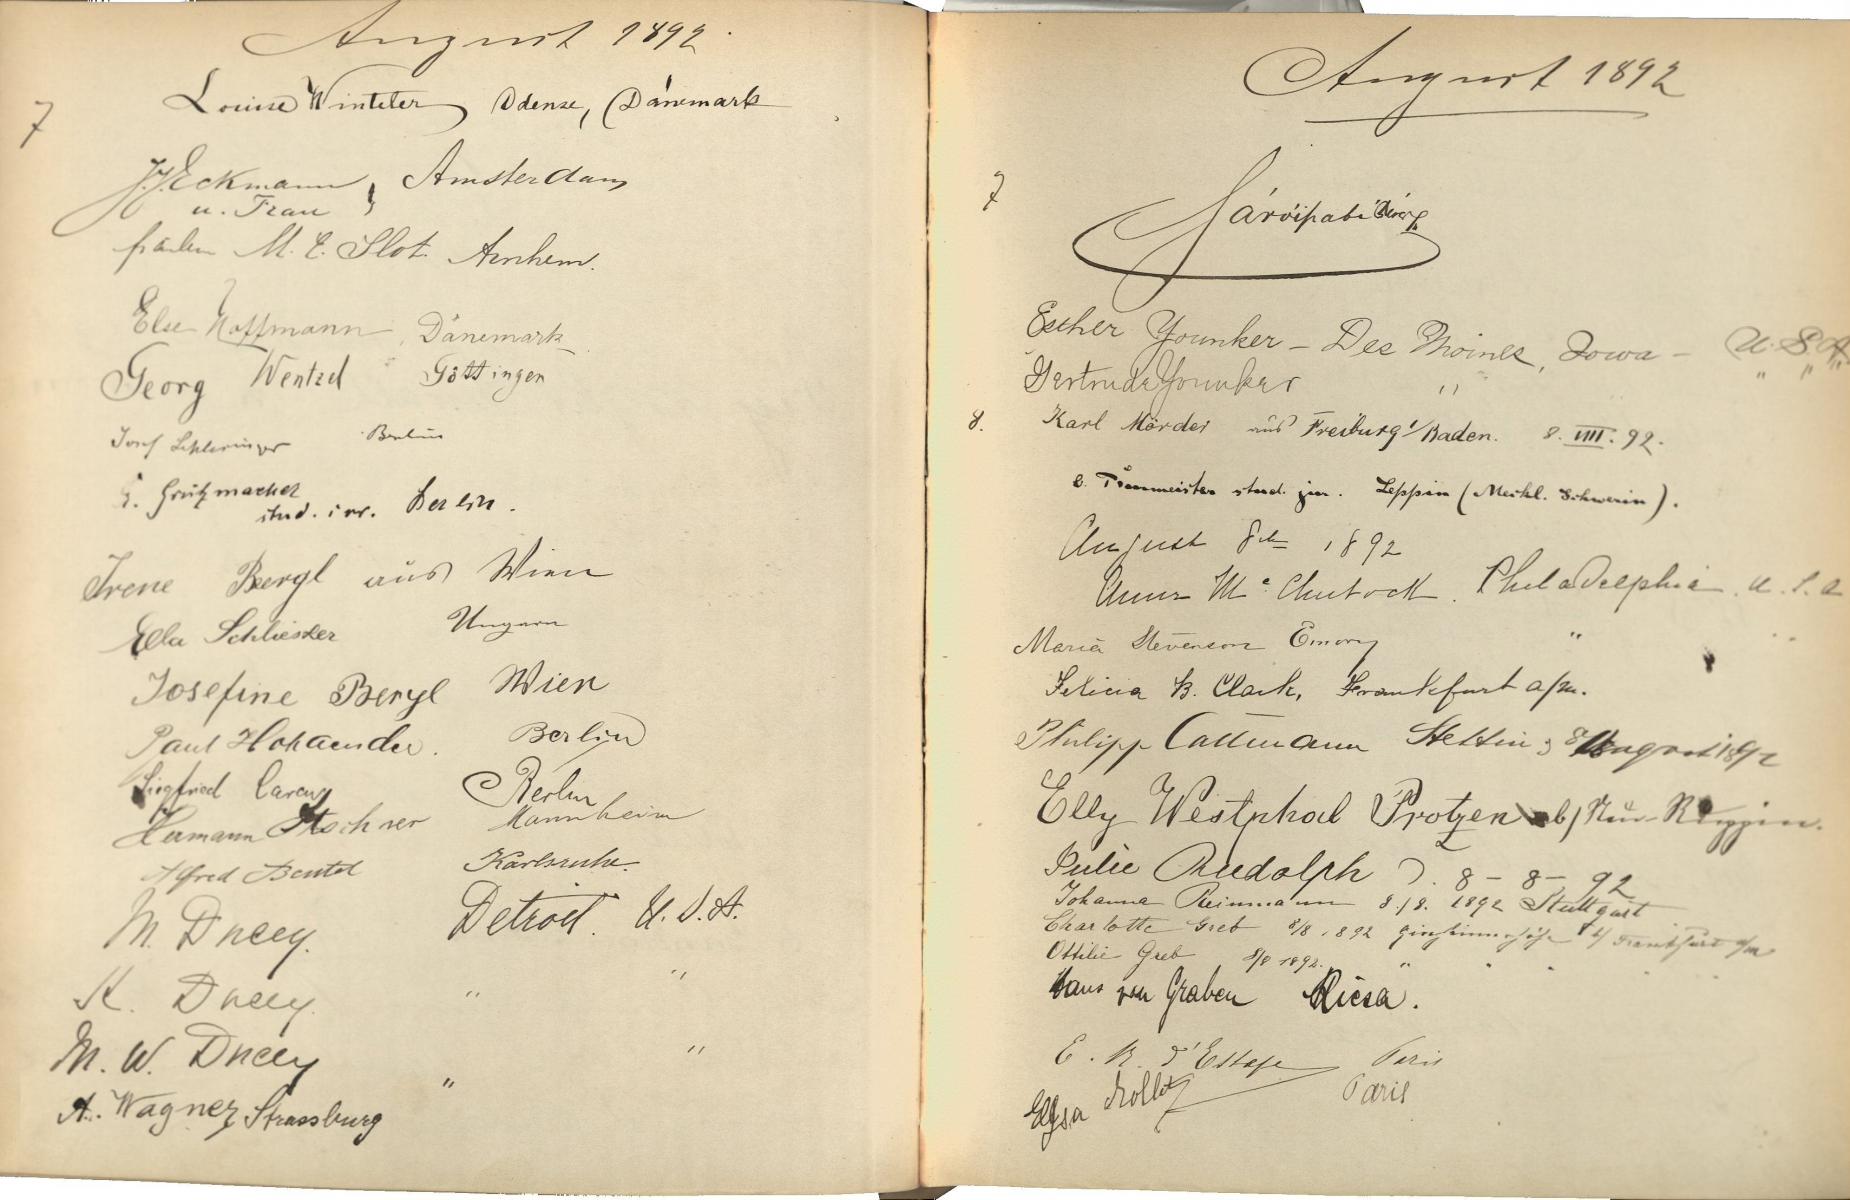 August 1892
7
Louise Winteler Odense, (Dänemark
J.J. Eckmann, Amsterdam
u. Frau
M. E. Slot. Arnhem.
Else Hoffmann, Dänemark
Georg Wentzel Göttingen
Josef Schlesinger Berlin
G. Grützmacher
stud. iur. Berlin.
Irene Bergl aus Wien
Ella Schliesser Ungarn
Josefine Bergl Wien
Paul Holländer. Berlin
Siegfried Berlin
Hermann Mannheim
Alfred Beutel Karlsruhe.
M. Ducey. Detroit. U.S.A.
K. Ducey. " "
M. W. Ducey " "
A. Wagner Strassburg
August 1892
7
Esther Younker - Des Moines, Iowa - U.S.A.
Gertrude Younker " " " "
8. Karl Mörder aus Freiburg i/Baden. 8. VIII. 92.
stud. jur. Leppin (Meckl. Schwerin).
August 8th 1892
Philadelphia. U.S.A
Maria Stevenson Emory " " "
Felicia B. Clark, Frankfurt a/m.
Philipp Stettin 8 August 1892
Elly Westphal Protzen b/ Neu-Ruppin.
Julie Rudolph 8-8-92
Johanna Reinmann 8./8. 1892 Stuttgart
Charlotte Greb 8/8 1892 b/ Frankfurt a/m
Ottilie Greb 8/8 1892. " " "
Hans von Graben Riesa.
Paris
Elsa Paris